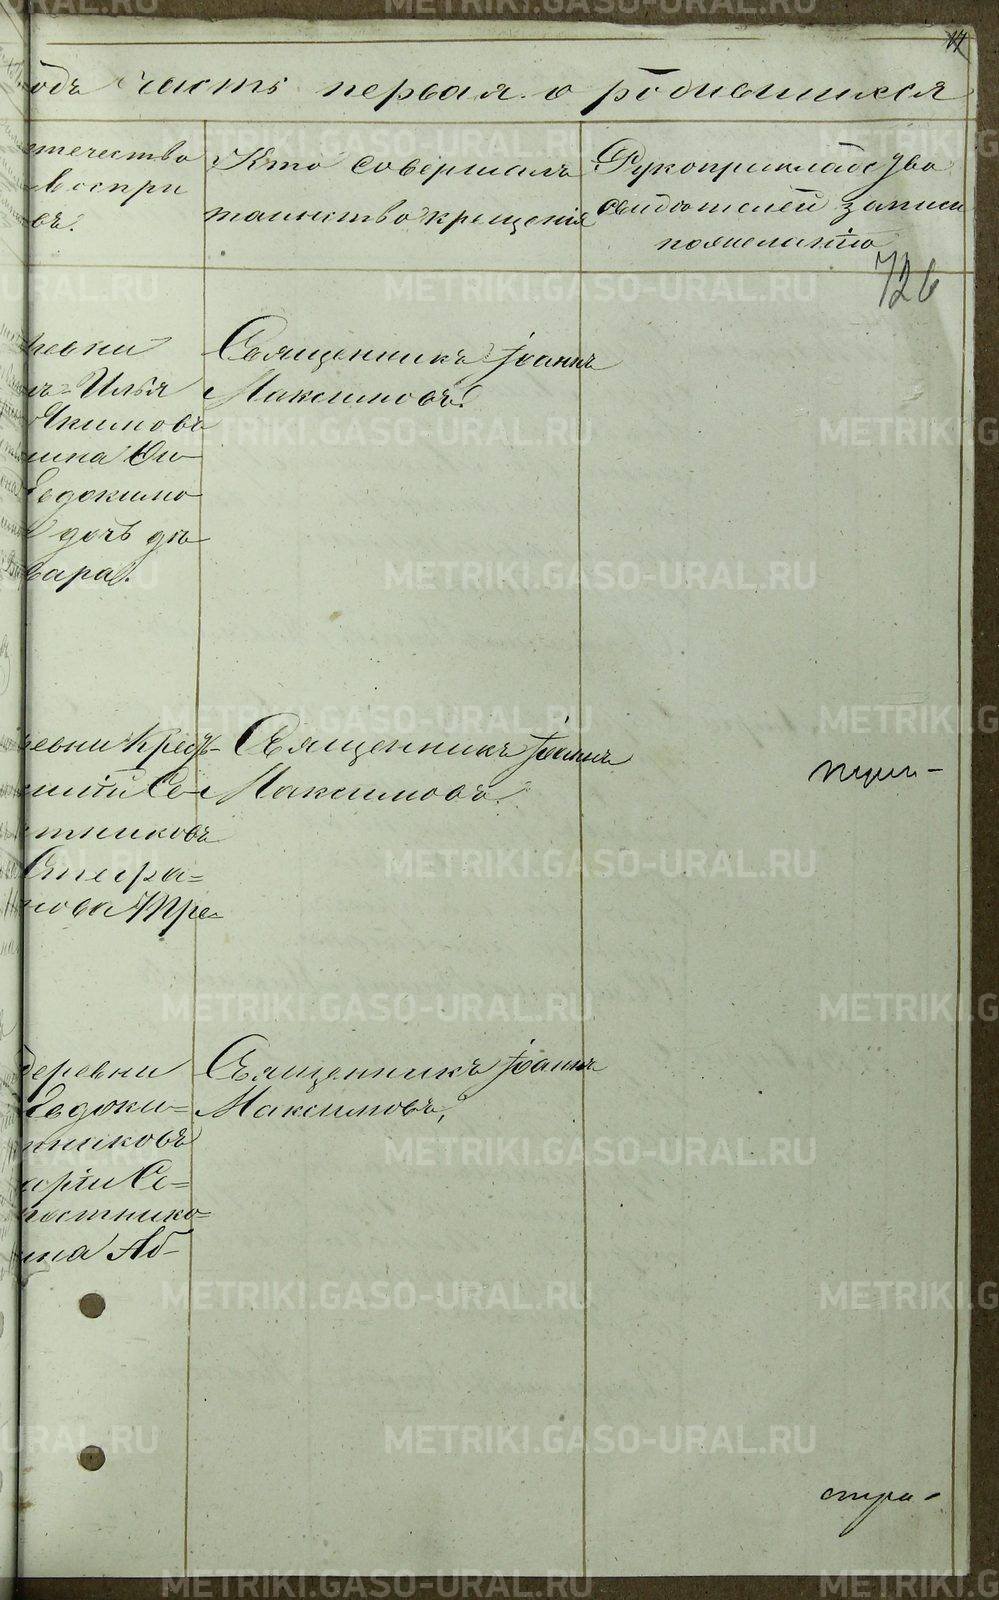 17
одъ часть первая о родившихся
отечество
воспри
въ.
Кто совершалъ
таинство крещенія
Рукоприкладство
свидѣтелей записи
по желанію
726
ревни
Илья
Якимовъ
Евдокимо
дочь дѣ
вара.
Священникъ Іоаннъ
Максимовъ.
ревни
тниковъ
нова Тре-
Священникъ Іоаннъ
Максимовъ.
деревни
Евдоки-
тниковъ
арiи Се-
постнико-
ина Аб-
Священникъ Іоаннъ
Максимовъ,
стра-
METRIKI.GASO-URAL.RU